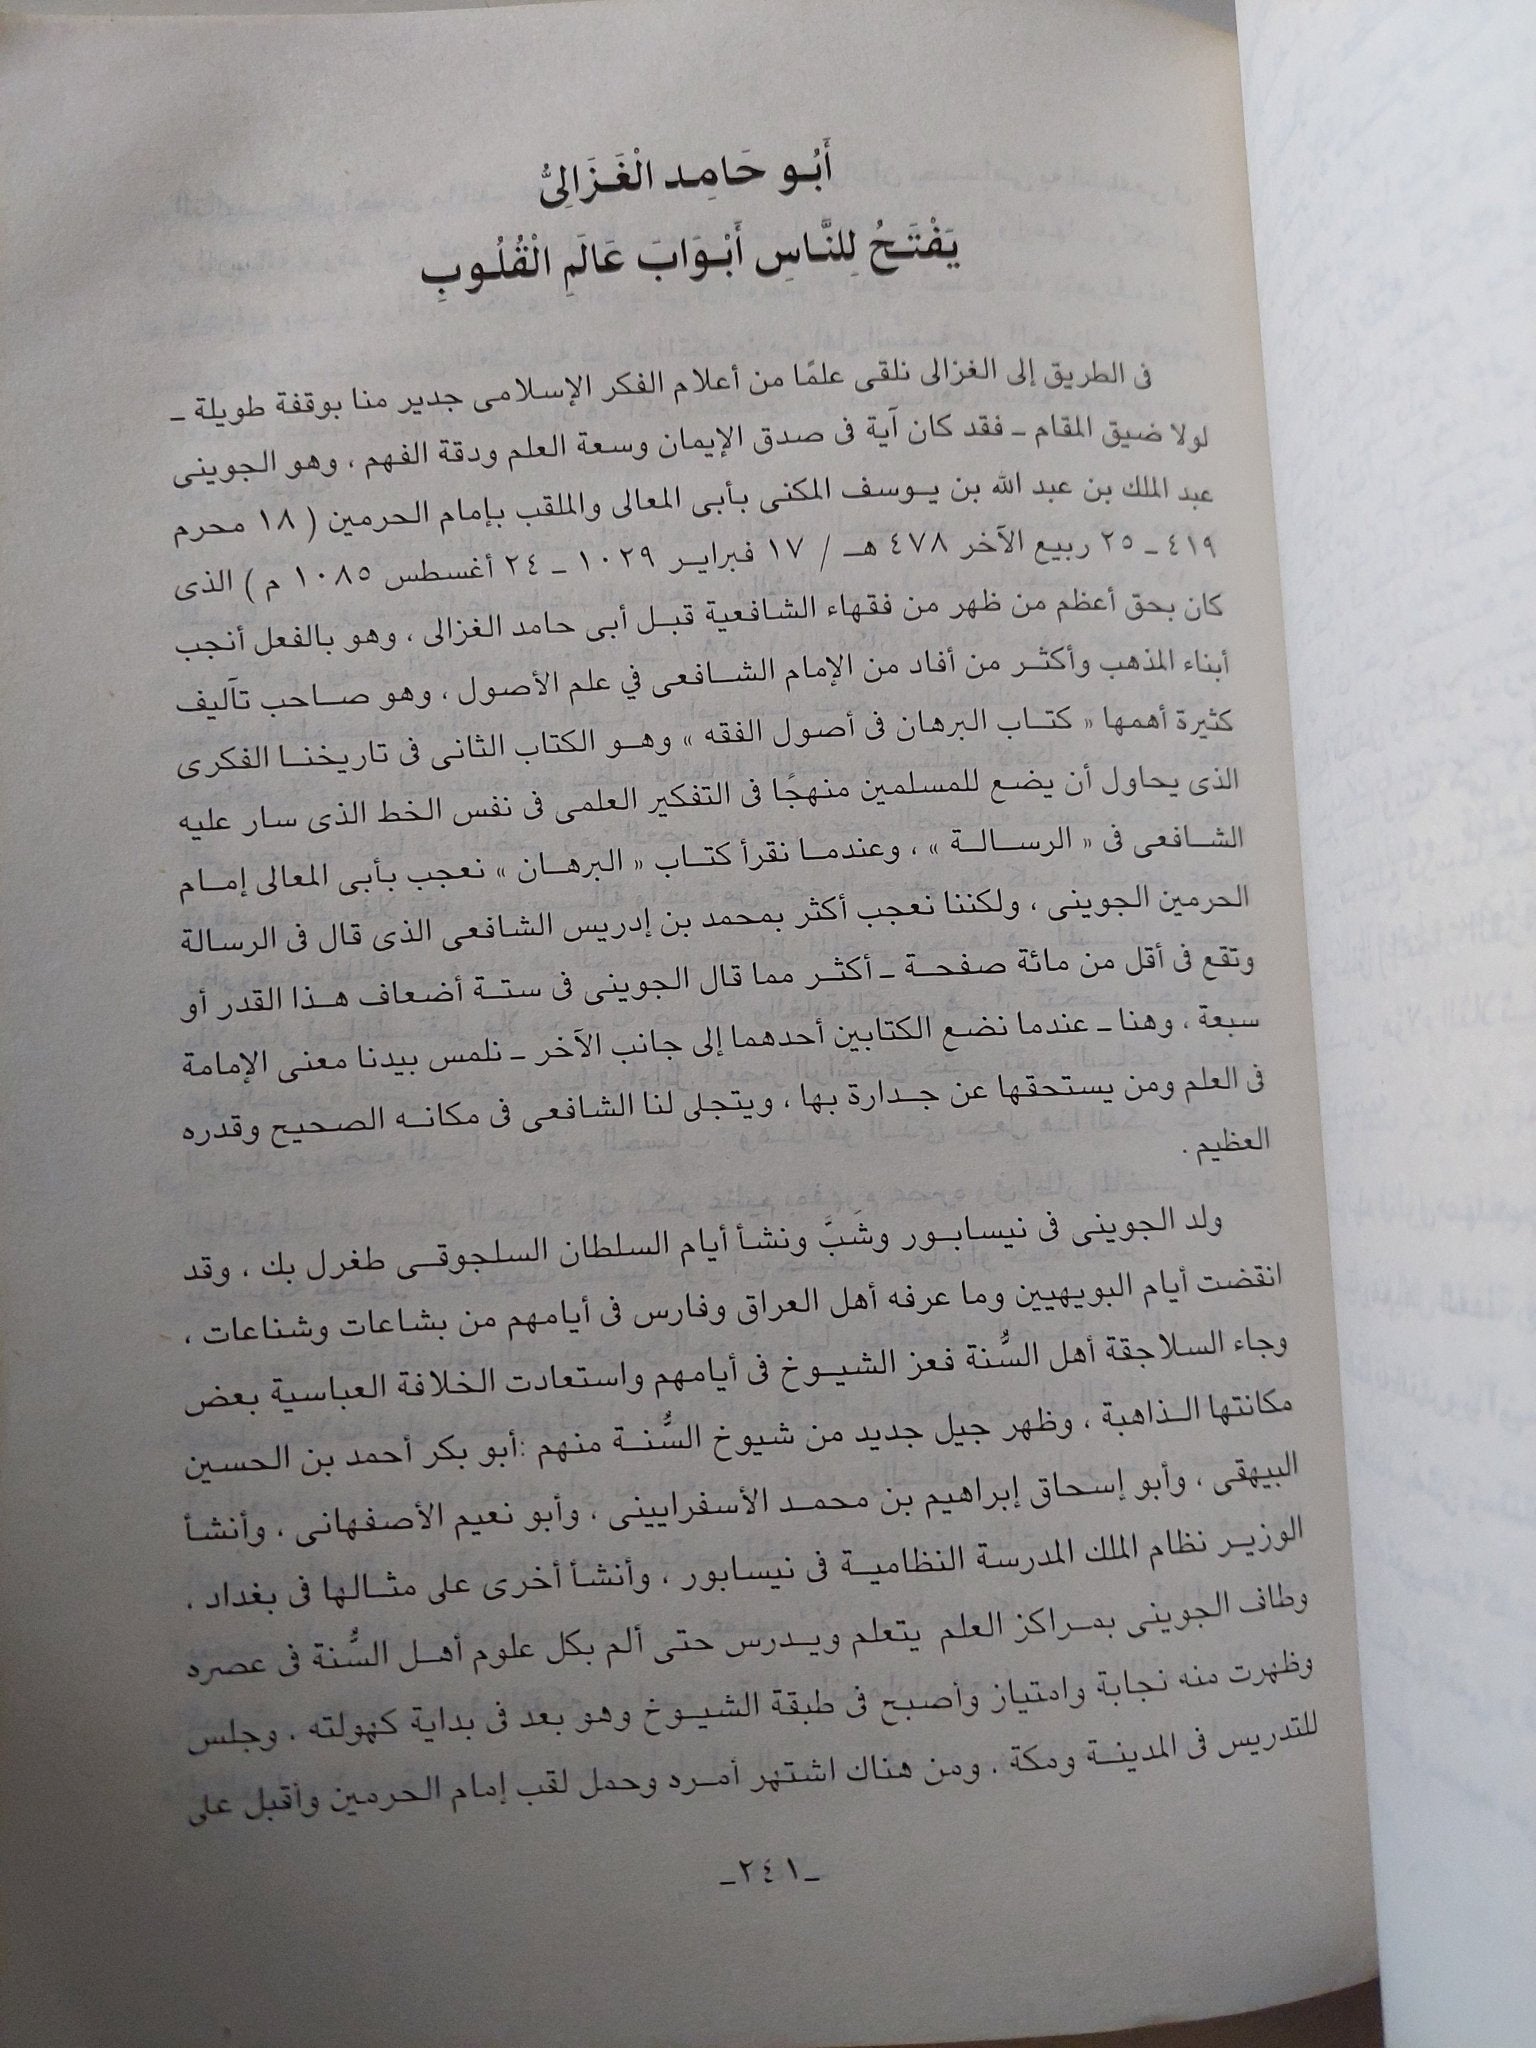 أَبُو حَامِد الْغَزَالِىُّ
يَفْتَحُ لِلنَّاسِ أَبْوَابَ عَالَمِ الْقُلُوبِ
فى الطريق إلى الغزالى نلقى علمًا من أعلام الفكر الإسلامى جدير منا بوقفة طويلة ـ
لولا ضيق المقام ـ فقد كان آية فى صدق الإيمان وسعة العلم ودقة الفهم ، وهو الجوينى
عبد الملك بن عبد الله بن يوسف المكنى بأبى المعالى والملقب بإمام الحرمين ( ١٨ محرم
٤١٩ ـ ٢٥ ربيع الآخر ٤٧٨ هـ / ١٧ فبراير ١٠٢٩ ـ ٢٤ أغسطس ١٠٨٥ م ) الذى
كان بحق أعظم من ظهر من فقهاء الشافعية قبل أبى حامد الغزالى ، وهو بالفعل أنجب
أبناء المذهب وأكثر من أفاد من الإمام الشافعى في علم الأصول ، وهو صاحب تآليف
كثيرة أهمها « كتاب البرهان فى أصول الفقه » وهو الكتاب الثانى فى تاريخنا الفكرى
الذى يحاول أن يضع للمسلمين منهجًا فى التفكير العلمى فى نفس الخط الذى سار عليه
الشافعى فى « الرسالة » ، وعندما نقرأ كتاب « البرهان » نعجب بأبى المعالى إمام
الحرمين الجوينى ، ولكننا نعجب أكثر بمحمد بن إدريس الشافعى الذى قال فى الرسالة
وتقع فى أقل من مائة صفحة ـ أكثر مما قال الجوينى فى ستة أضعاف هذا القدر أو
سبعة ، وهنا ـ عندما نضع الكتابين أحدهما إلى جانب الآخر ـ نلمس بيدنا معنى الإمامة
فى العلم ومن يستحقها عن جدارة بها ، ويتجلى لنا الشافعى فى مكانه الصحيح وقدره
العظيم .
ولد الجوينى فى نيسابور وشَبَّ ونشأ أيام السلطان السلجوقى طغرل بك ، وقد
انقضت أيام البويهيين وما عرفه أهل العراق وفارس فى أيامهم من بشاعات وشناعات ،
وجاء السلاجقة أهل السُّنة فعز الشيوخ فى أيامهم واستعادت الخلافة العباسية بعض
مكانتها الذاهبة ، وظهر جيل جديد من شيوخ السُّنة منهم :أبو بكر أحمد بن الحسين
البيهقى ، وأبو إسحاق إبراهيم بن محمد الأسفرايينى ، وأبو نعيم الأصفهانى ، وأنشأ
الوزير نظام الملك المدرسة النظامية فى نيسابور ، وأنشأ أخرى على مثالها فى بغداد ،
وطاف الجوينى بمراكز العلم يتعلم ويدرس حتى ألم بكل علوم أهل السُّنة فى عصره
وظهرت منه نجابة وامتياز وأصبح فى طبقة الشيوخ وهو بعد فى بداية كهولته ، وجلس
للتدريس فى المدينة ومكة ، ومن هناك اشتهر أمره وحمل لقب إمام الحرمين وأقبل على
ـ٢٤١ـ